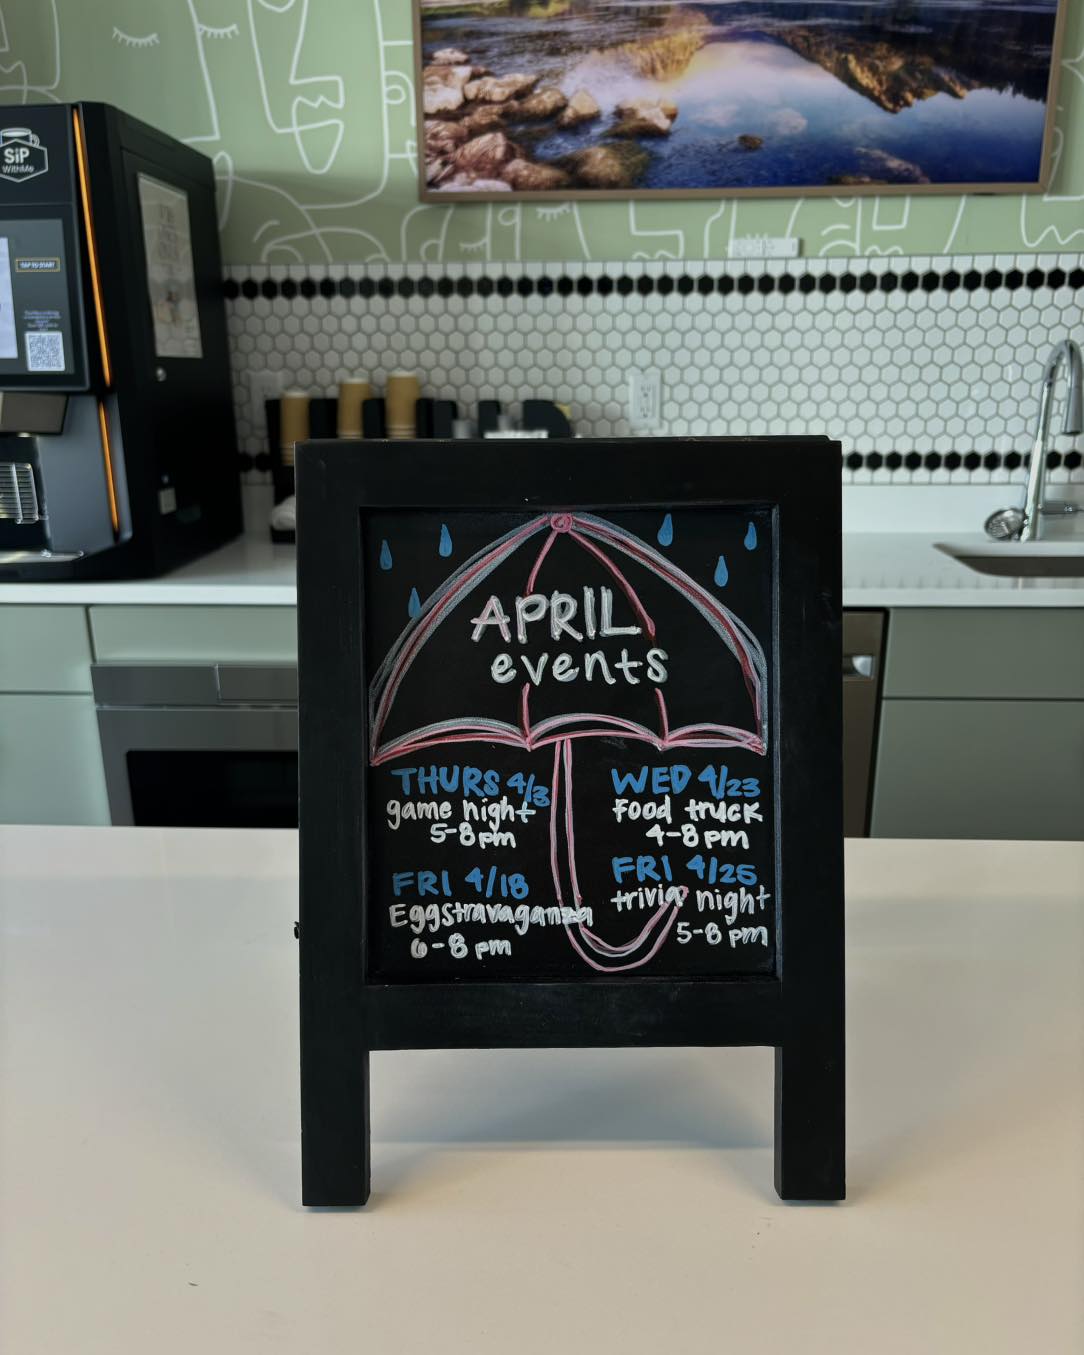 SiP
WithMe
TAP TO START
APRIL
events
THURS 4/3
game night
5-8pm
FRI 4/18
Eggstravaganza
6-8 pm
WED 4/23
Food truck
4-8pm
FRI 4/25
trivia night
5-8 pm